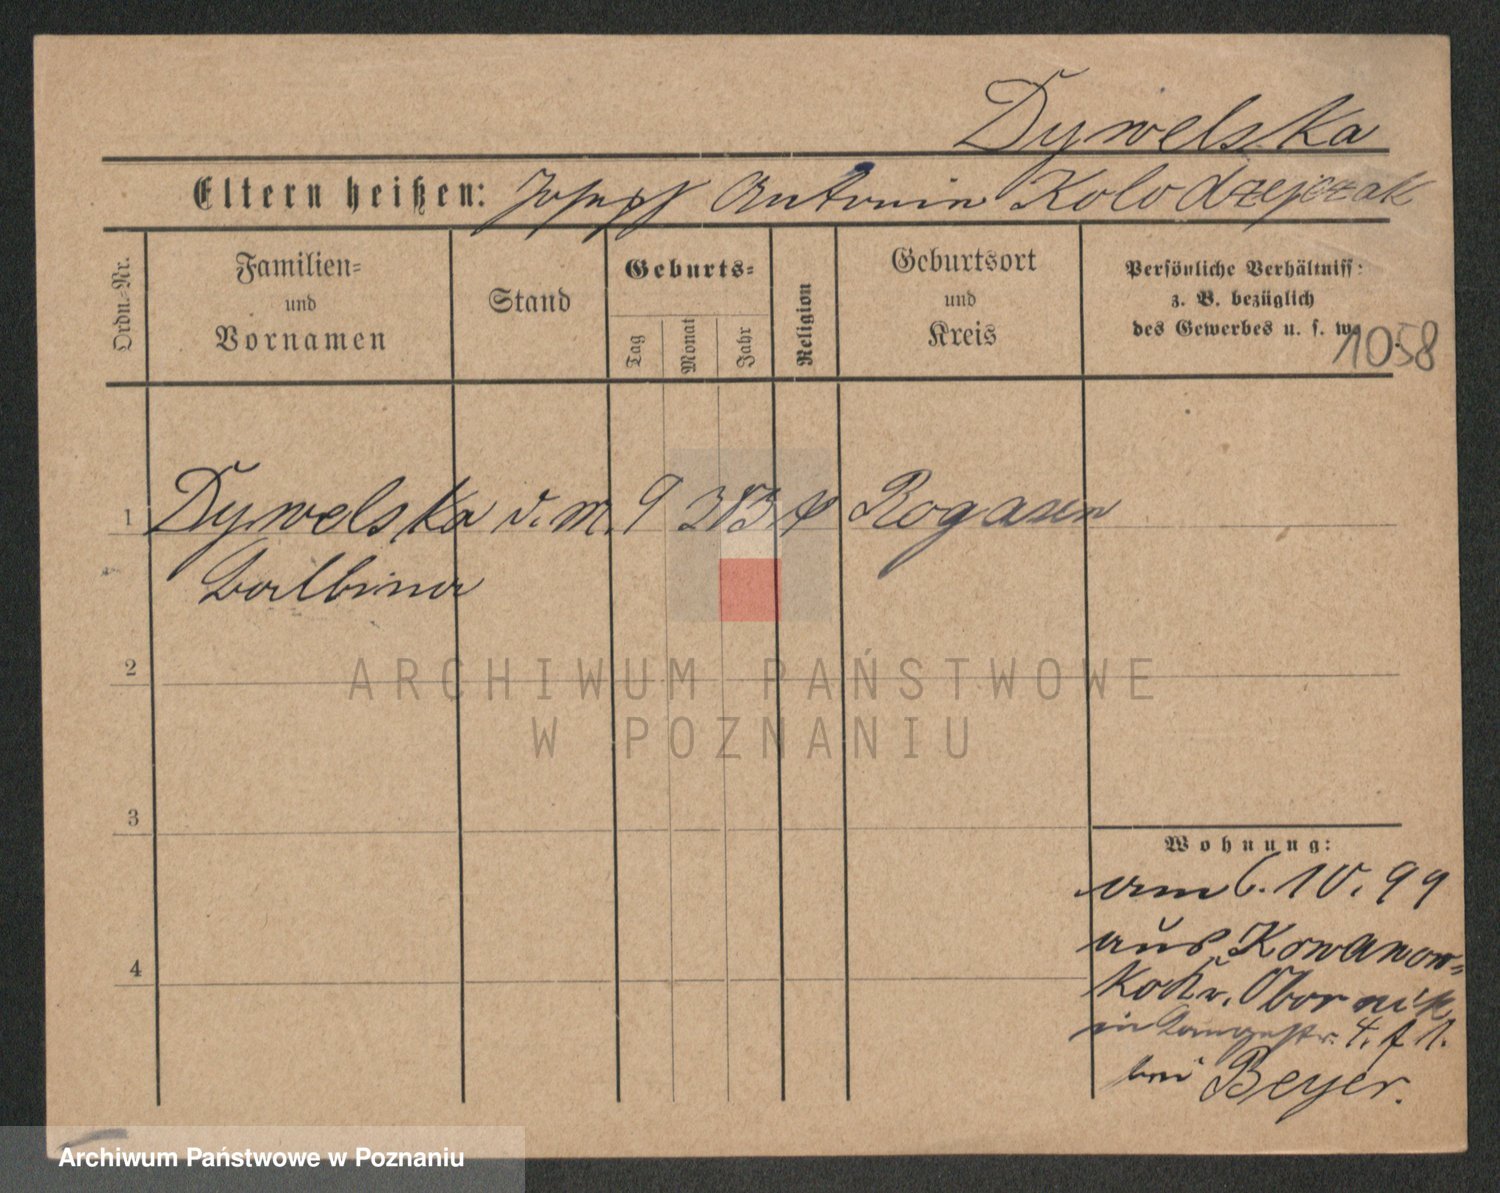 Dywelska
Eltern heißen: Joseph Antonin Kolodzejczak
Ordn.-Nr.
Familien-
und
Vornamen
Stand
Geburts-
Tag
Monat
Jahr
Religion
Geburtsort
und
Kreis
Persönliche Verhältniss:
z. B. bezüglich
des Gewerbes u. s. w.
1058
1 Dywelska d. m. 9 3 83 Rogasen
Balbina
2
ARCHIWUM PAŃSTWOWE
W POZNANIU
3
Wohnung:
am 6. 10. 99
aus Kowanow-
ko Kr. Obornik
in Langestr. 4. 1.
bei Beyer.
4
Archiwum Państwowe w Poznaniu